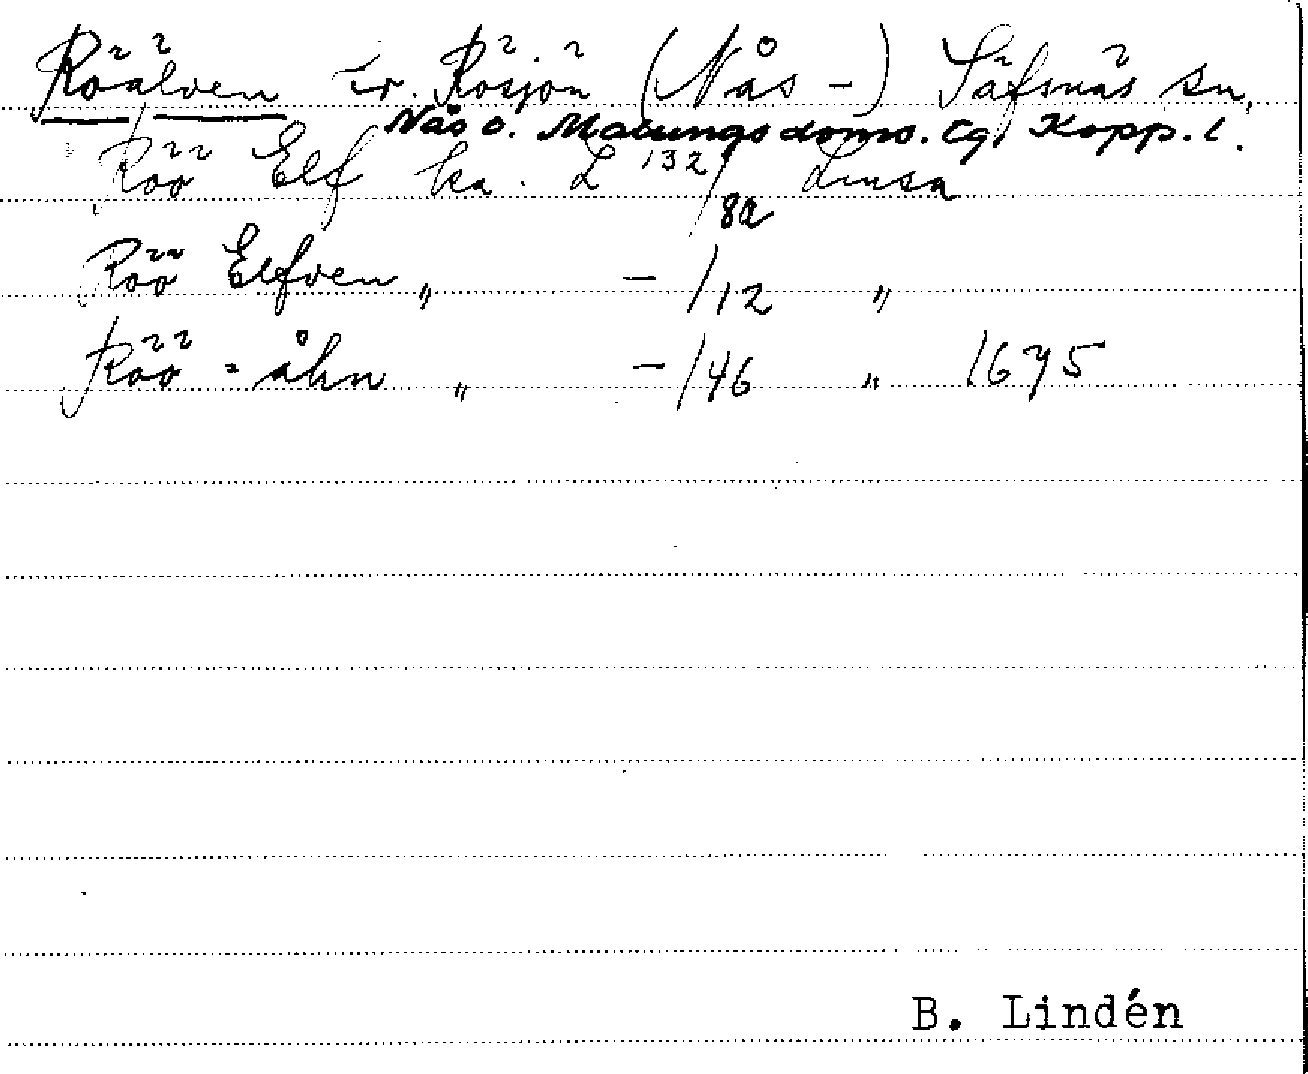 Röälven fr. Rösjön (Nås -) Säfsnäs sn,
Nås o. Malungs doms. tg, Kopp. l.
Röö Elf ka. L 132/8a Lmsa
Röö Elfven „ - /12 „
Röö - åhn „ - /46 „ 1675
B. Lindén